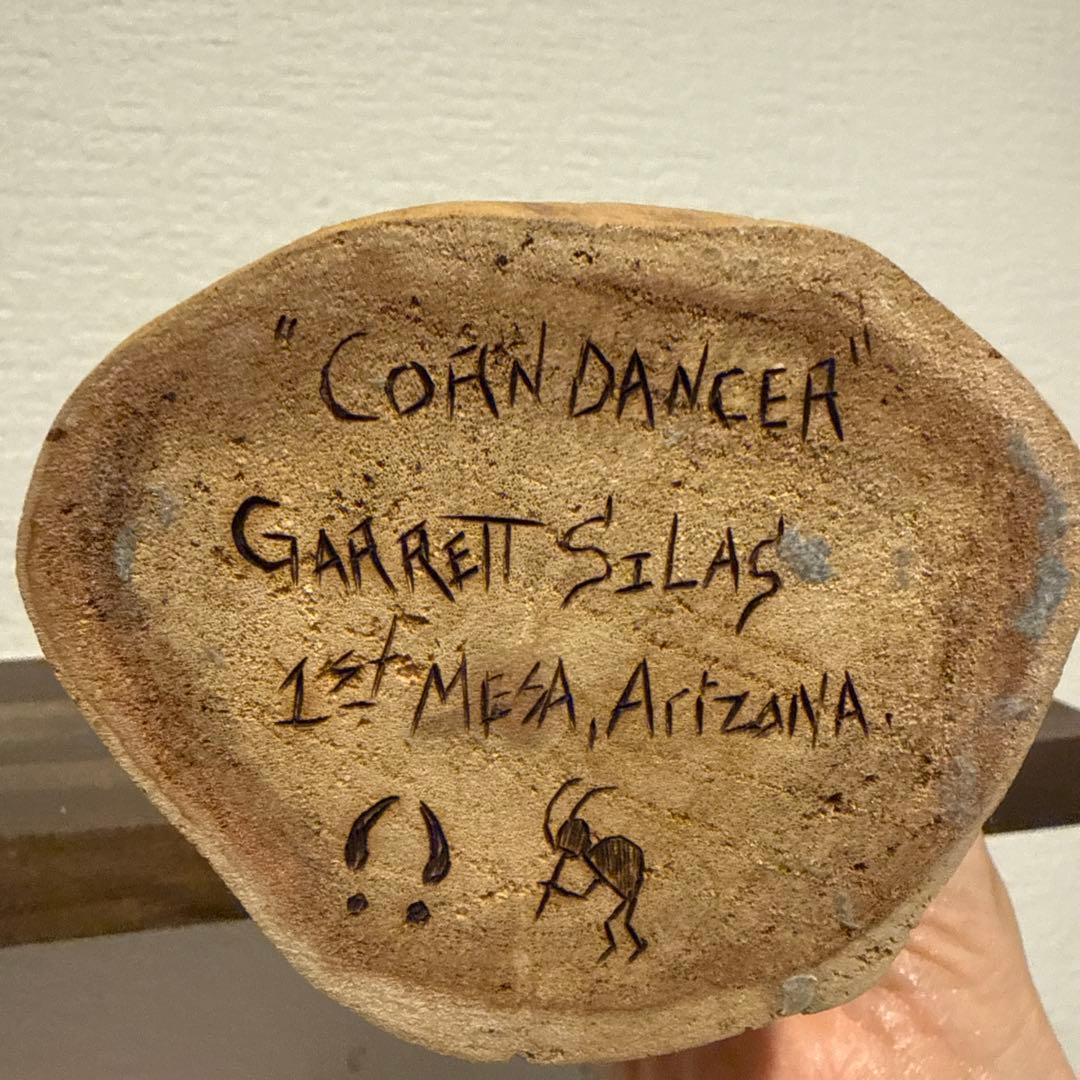 "CORN DANCER"
GARRETT SILAS
1st MESA, ArizonA.